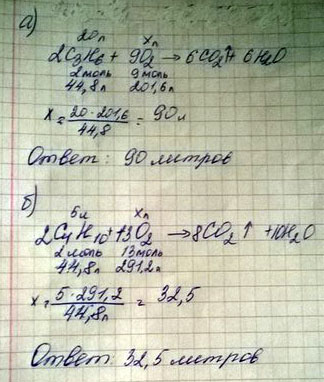 а)
20л хл
2C3H6 + 9O2 → 6CO2↑ + 6H2O
2моль 9моль
44,8л 201,6л
х = 20·201,6 / 44,8 = 90л
Ответ: 90 литров
б)
5л хл
2C4H10 + 13O2 → 8CO2↑ + 10H2O
2моль 13моль
44,8л 291,2л
х = 5·291,2 / 44,8л = 32,5
Ответ: 32,5 литров